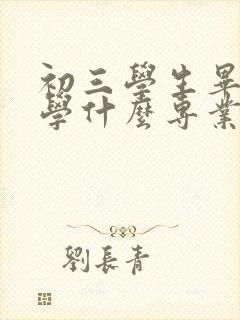 初三學生畢
學什麼專業
劉長青